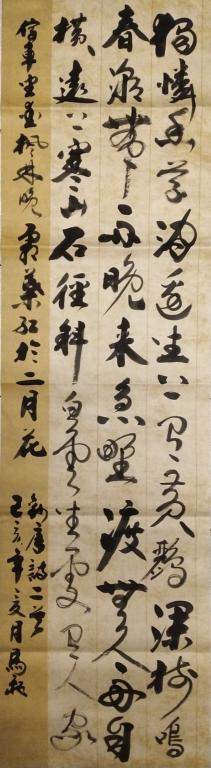 獨憐幽草澗邊生上有黃鸝深樹鳴
春潮帶雨晚來急野渡無人舟自
橫遠上寒山石徑斜白雲生處有人家
停車坐愛楓林晚霜葉紅於二月花
錄唐詩二首
己亥年夏月馬